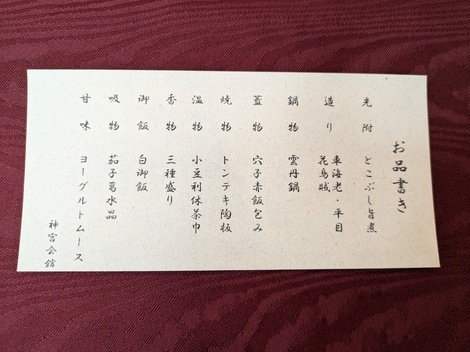 お品書き
先附 とこぶし旨煮
造り 車海老・平目
花鳥賊
鍋物 雲丹鍋
蓋物 穴子赤飯包み
焼物 トンテキ陶板
温物 小豆利休茶巾
香物 三種盛り
御飯 白御飯
吸物 茄子葛水晶
甘味 ヨーグルトムース
神宮会館